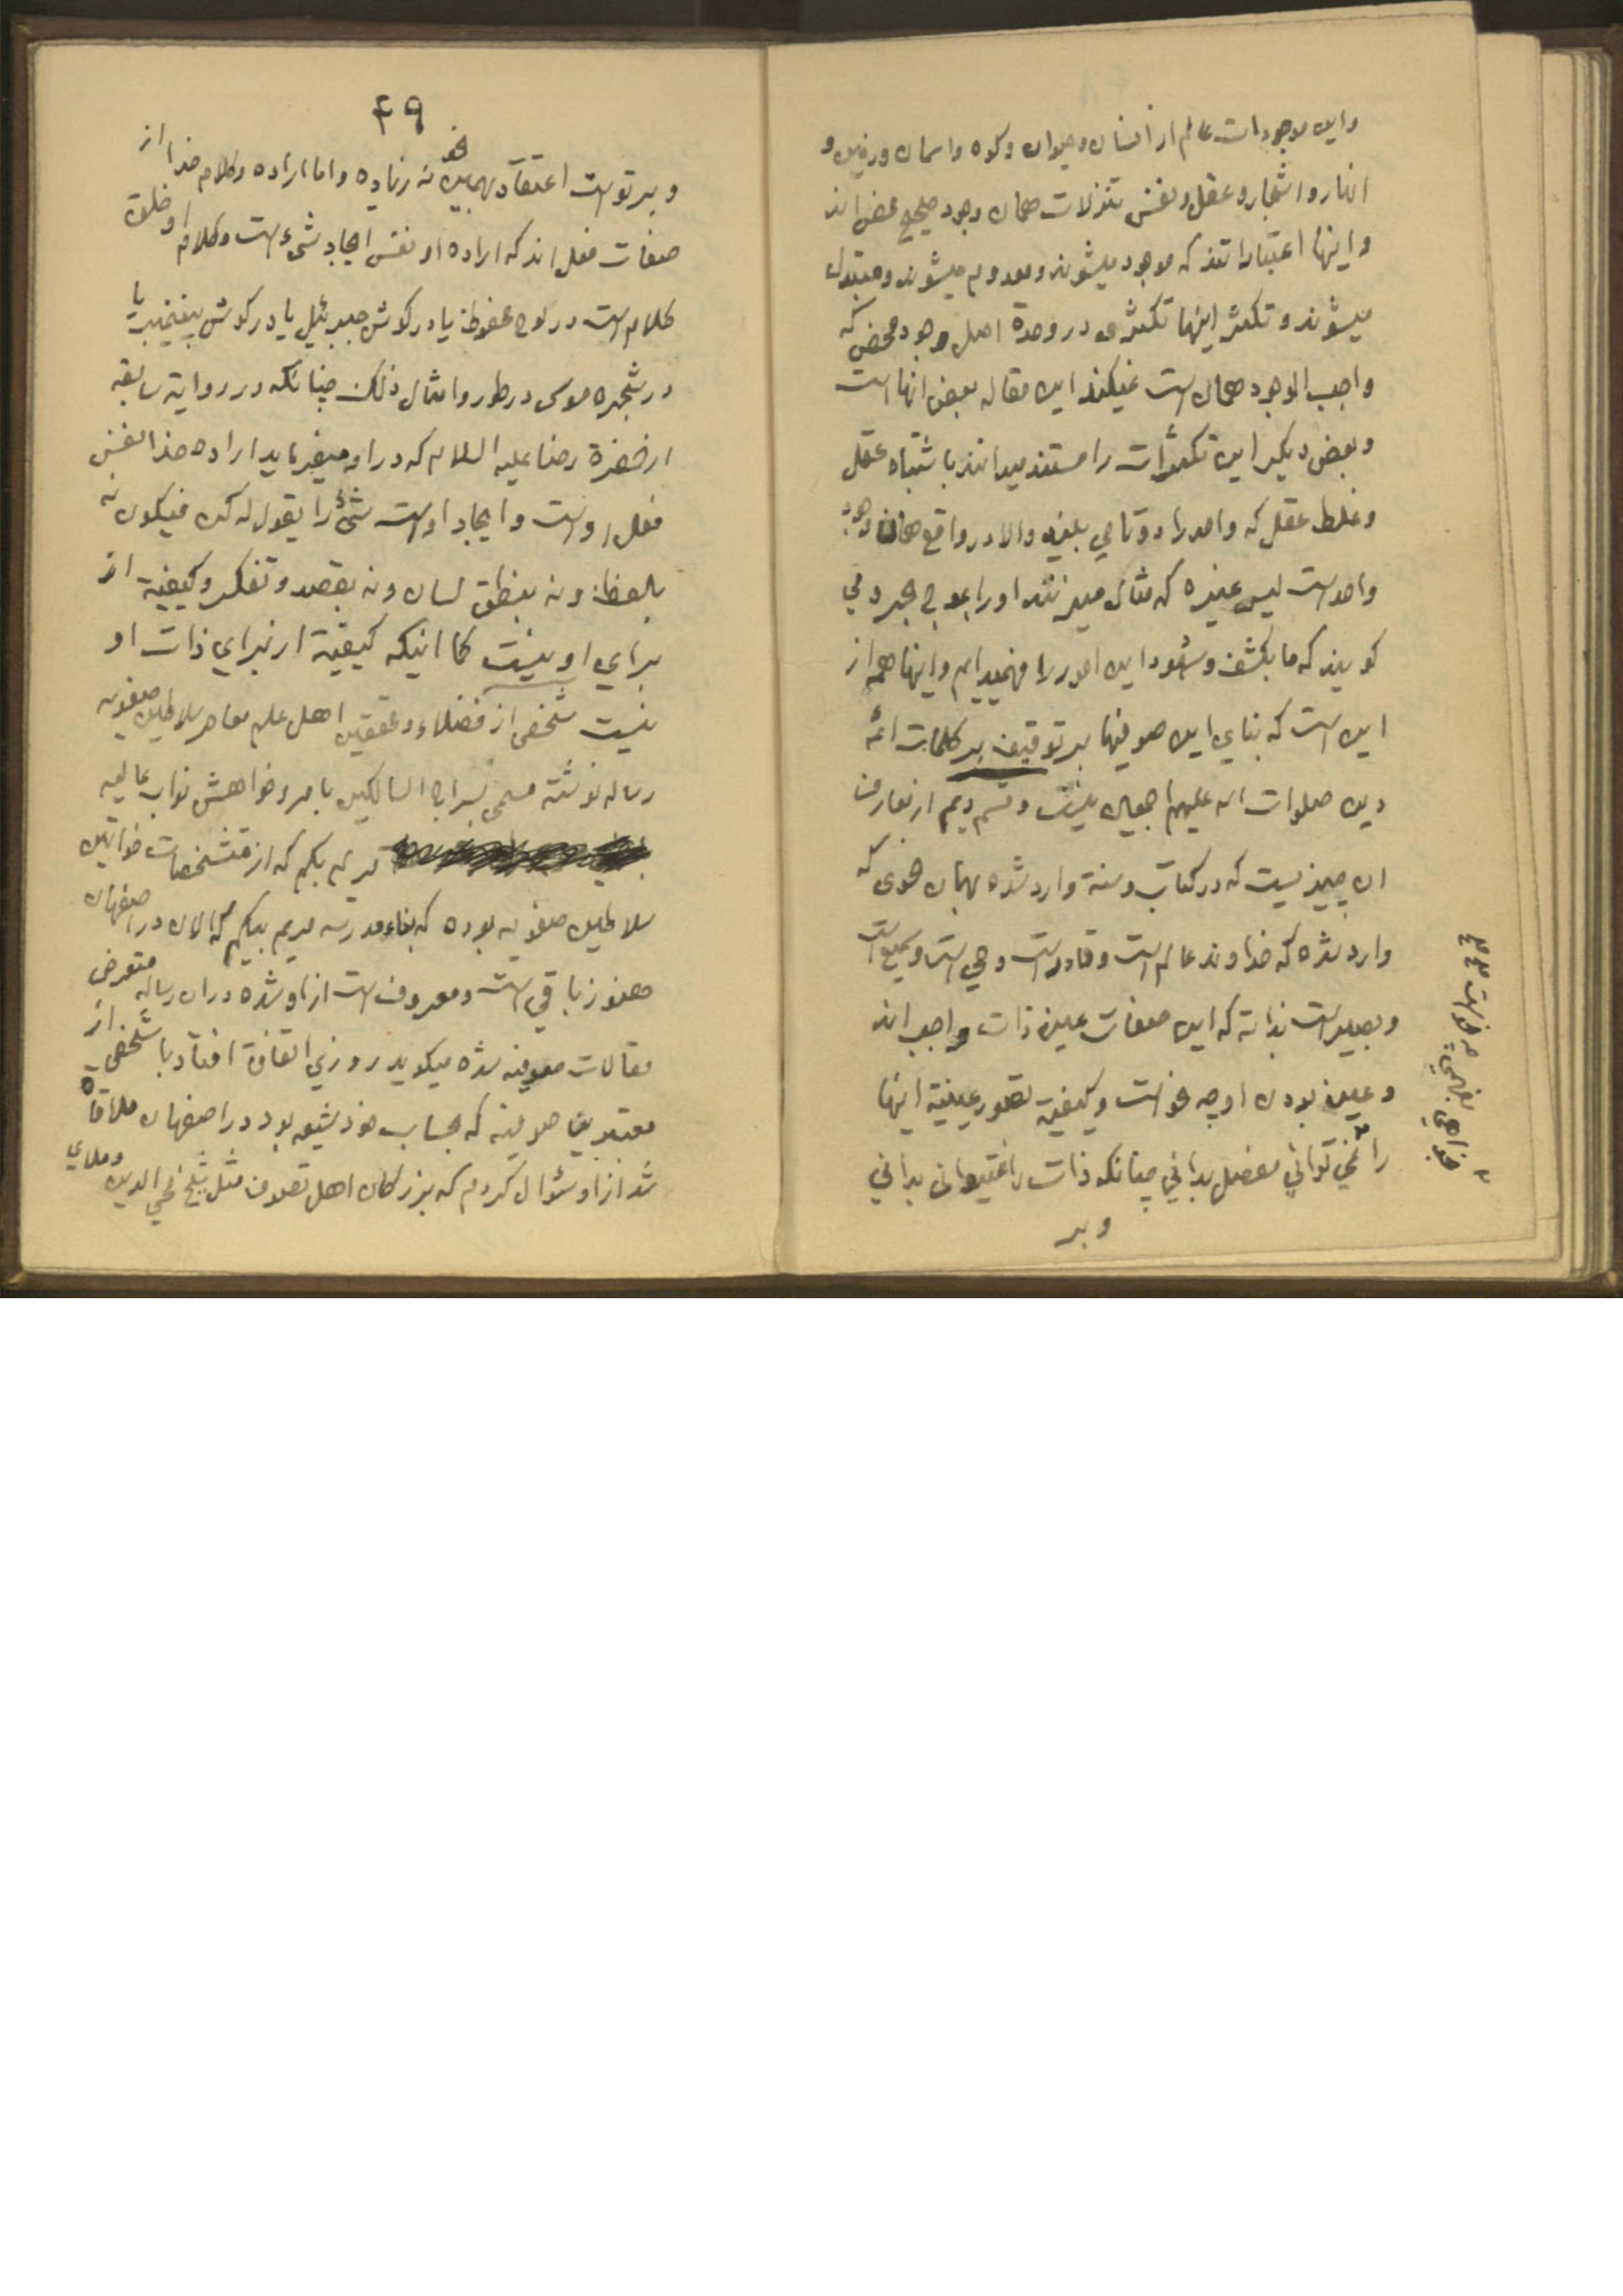 واین موجودات عالم از انسان و حیوان و کوه و اسمان و زمین و
انهار و اشجار و عقل و نفس تنزلات همان وجود صحیح محض اند
و اینها اعتباراتند که موجود میشوند و معدوم میشوند و متبدل
میشوند و تکثر اینها تکثری در وحدة اصل وجود محض که
واجب الوجود همان است نمیکند این مقاله بعض انها است
و بعض دیگر این تکثرات را مستند میدانند باشتباه عقل
و غلط عقل که واحد را دوتا می بیند والا در واقع همان وجود
واحد است لیس غیره که مثال میزنند او را بموج بحر و می
کویند که ما بکشف و شهود این امور را فهمیدایم و اینها همه از
این است که بنای این صوفیها بر توقیف بر کلمات ائمه
دین صلوات الله علیهم اجمعین نیست و قسم دیم از معارف
ان چیزیست که در کتاب و سنة وارد شده بهمان نحوی که
وارد شده که خداوند عالم است و قادر است و حی است و سمیع است
و بصیر است بذاته که این صفات عین ذات واجب اند
و عین بودن او چه نحو است و کیفیة تصور عینیة اینها
را نمی توانی مفصل بدانی چنانکه ذات را نمیتوانی بدانی
و بر
۴۹
و بر تو است اعتقاد بهمین نحو نه زیاده و اما اراده و کلام خدا از
صفات فعل اند که اراده او نفس ایجاد شیء است و کلام او خلق
کلام است در لوح محفوظ یا در کوش جبرئیل یا در کوش پیغمبر یا
در شجره موسی در طور و امثال ذلک چنانکه در روایة سابقه
از حضرة رضا علیه السلام که در او میفرماید اراده خدا نفس
فعل اوست و ایجاد اوست شیء را یقول له کن فیکون نه
بلفظ و نه بنطق لسان و نه بقصد و تفکر و کیفیة از
برای او نیست کما اینکه کیفیة از برای ذات او
نیست شخصی از فضلاء و محققین اهل علم معاصر سلاطین صفویه
رساله نوشته مسمی بسراج السالکین بامر و خواهش نواب عالیه
مریم بکم که از متشخصات خواتین
سلاطین صفویه بوده که بناء مدرسه مریم بیکم که الان در اصفهان
هنوز باقی است و معروف است از او شده در ان رساله متعرض
مقالات صوفیه شده میکوید روزی اتفاق افتاد با شخصی از
معتبرین صوفیه که بحساب خود شیعه بود در اصفهان ملاقاة
شد از او سئوال کردم که بزرکان اهل تصوف مثل شیخ محی الدین و ملای